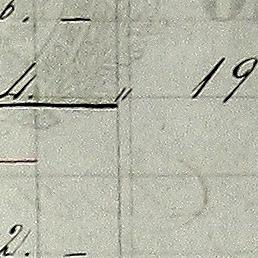 6. —
4 " 19
2. —